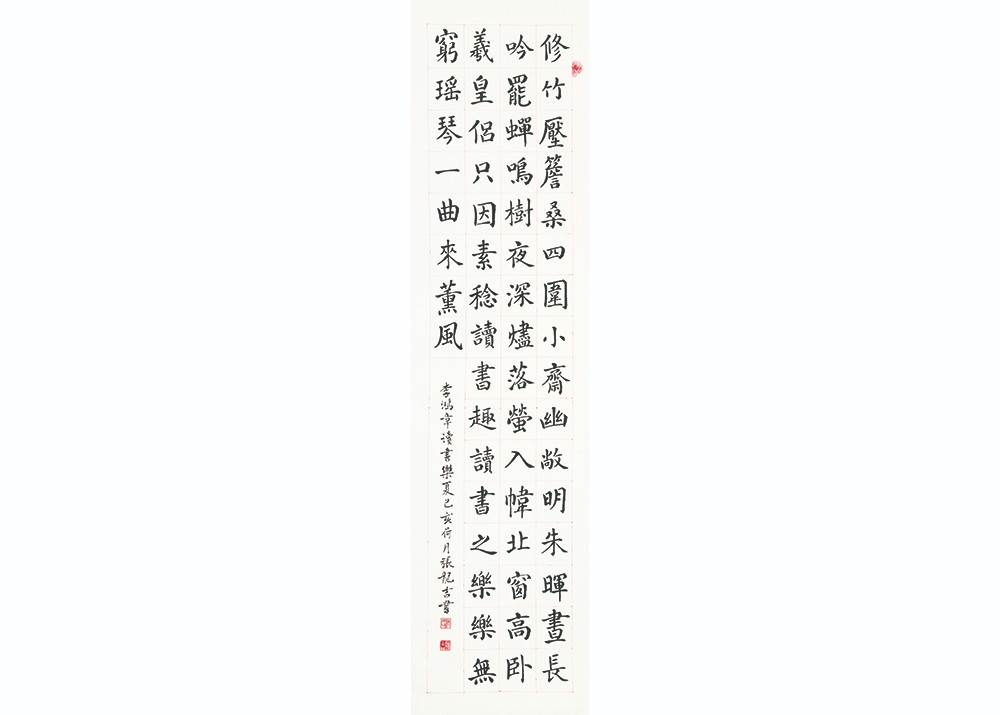 修竹壓簷桑四圍小齋幽敞明朱暉晝長
吟罷蟬鳴樹夜深燼落螢入幃北窗高卧
羲皇侶只因素稔讀書趣讀書之樂樂無
窮瑤琴一曲來薰風
李鴻章讀書樂夏己亥荷月張龍吉書